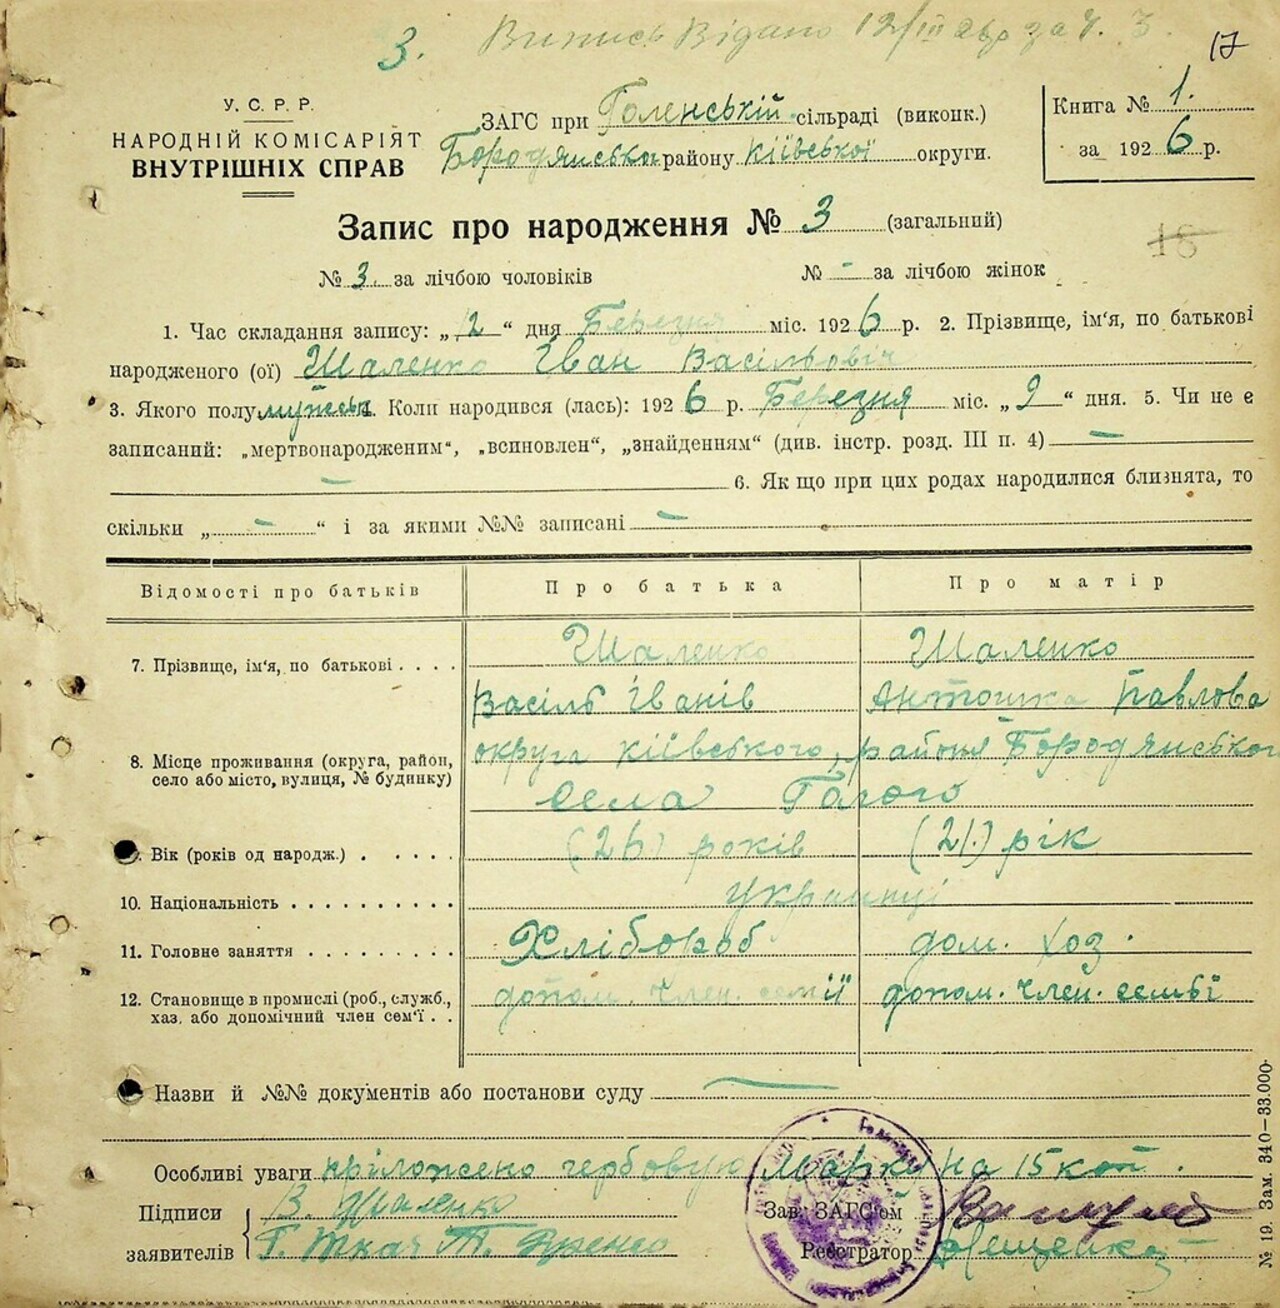 3. Випись Видано 12/III 26р за ч. 3.
17
У. С. Р. Р.
НАРОДНІЙ КОМІСАРІЯТ
ВНУТРІШНІХ СПРАВ
ЗАГС при Голенській сільраді (виконк.)
Бородянська району Київської округи.
Книга № 1.
за 1926 р.
Запис про народження № 3 (загальний)
18
№ 3. за лічбою чоловіків № - за лічбою жінок
1. Час складання запису: „12“ дня Березня міс. 1926 р. 2. Прізвище, ім‘я, по батькові
народженого (ої) Шаленко Іван Васільовіч
3. Якого полу мужеськ. Коли народився (лась): 1926 р. Березня міс. „9“ дня. 5. Чи не є
записаний: „мертвонародженим“, „всиновлен“, „знайденням“ (див. інстр. розд. III п. 4) —
— 6. Як що при цих родах народилися близнята, то
скільки „ - “ і за якими №№ записані —
Відомості про батьків Про батька Про матір
7. Прізвище, ім‘я, по батькові . . . . Шаленко Шаленко
Васіль Іванів Антошка Павлова
8. Місце проживання (округа, район, округи Київського, району Бородянського
село або місто, вулиця, № будинку) села
Вік (років од народж.) . . . . . (26) років (21.) рік
10. Національність . . . . . . . . . . українці
11. Головне заняття . . . . . . . . . Хлібороб дом. хоз.
12. Становище в промислі (роб., служб., допом. член. семії допом. член. семьі
хаз. або допомічний член сем‘ї . .
Назви й №№ документів або постанови суду —
Особливі уваги пріложено гербовую марку на 15 коп.
Підписи В. Шаленко Зав. ЗАГС‘ом
заявителів Г. Ткач Т. Реєстратор
№ 19. Зам. 340—33.000.